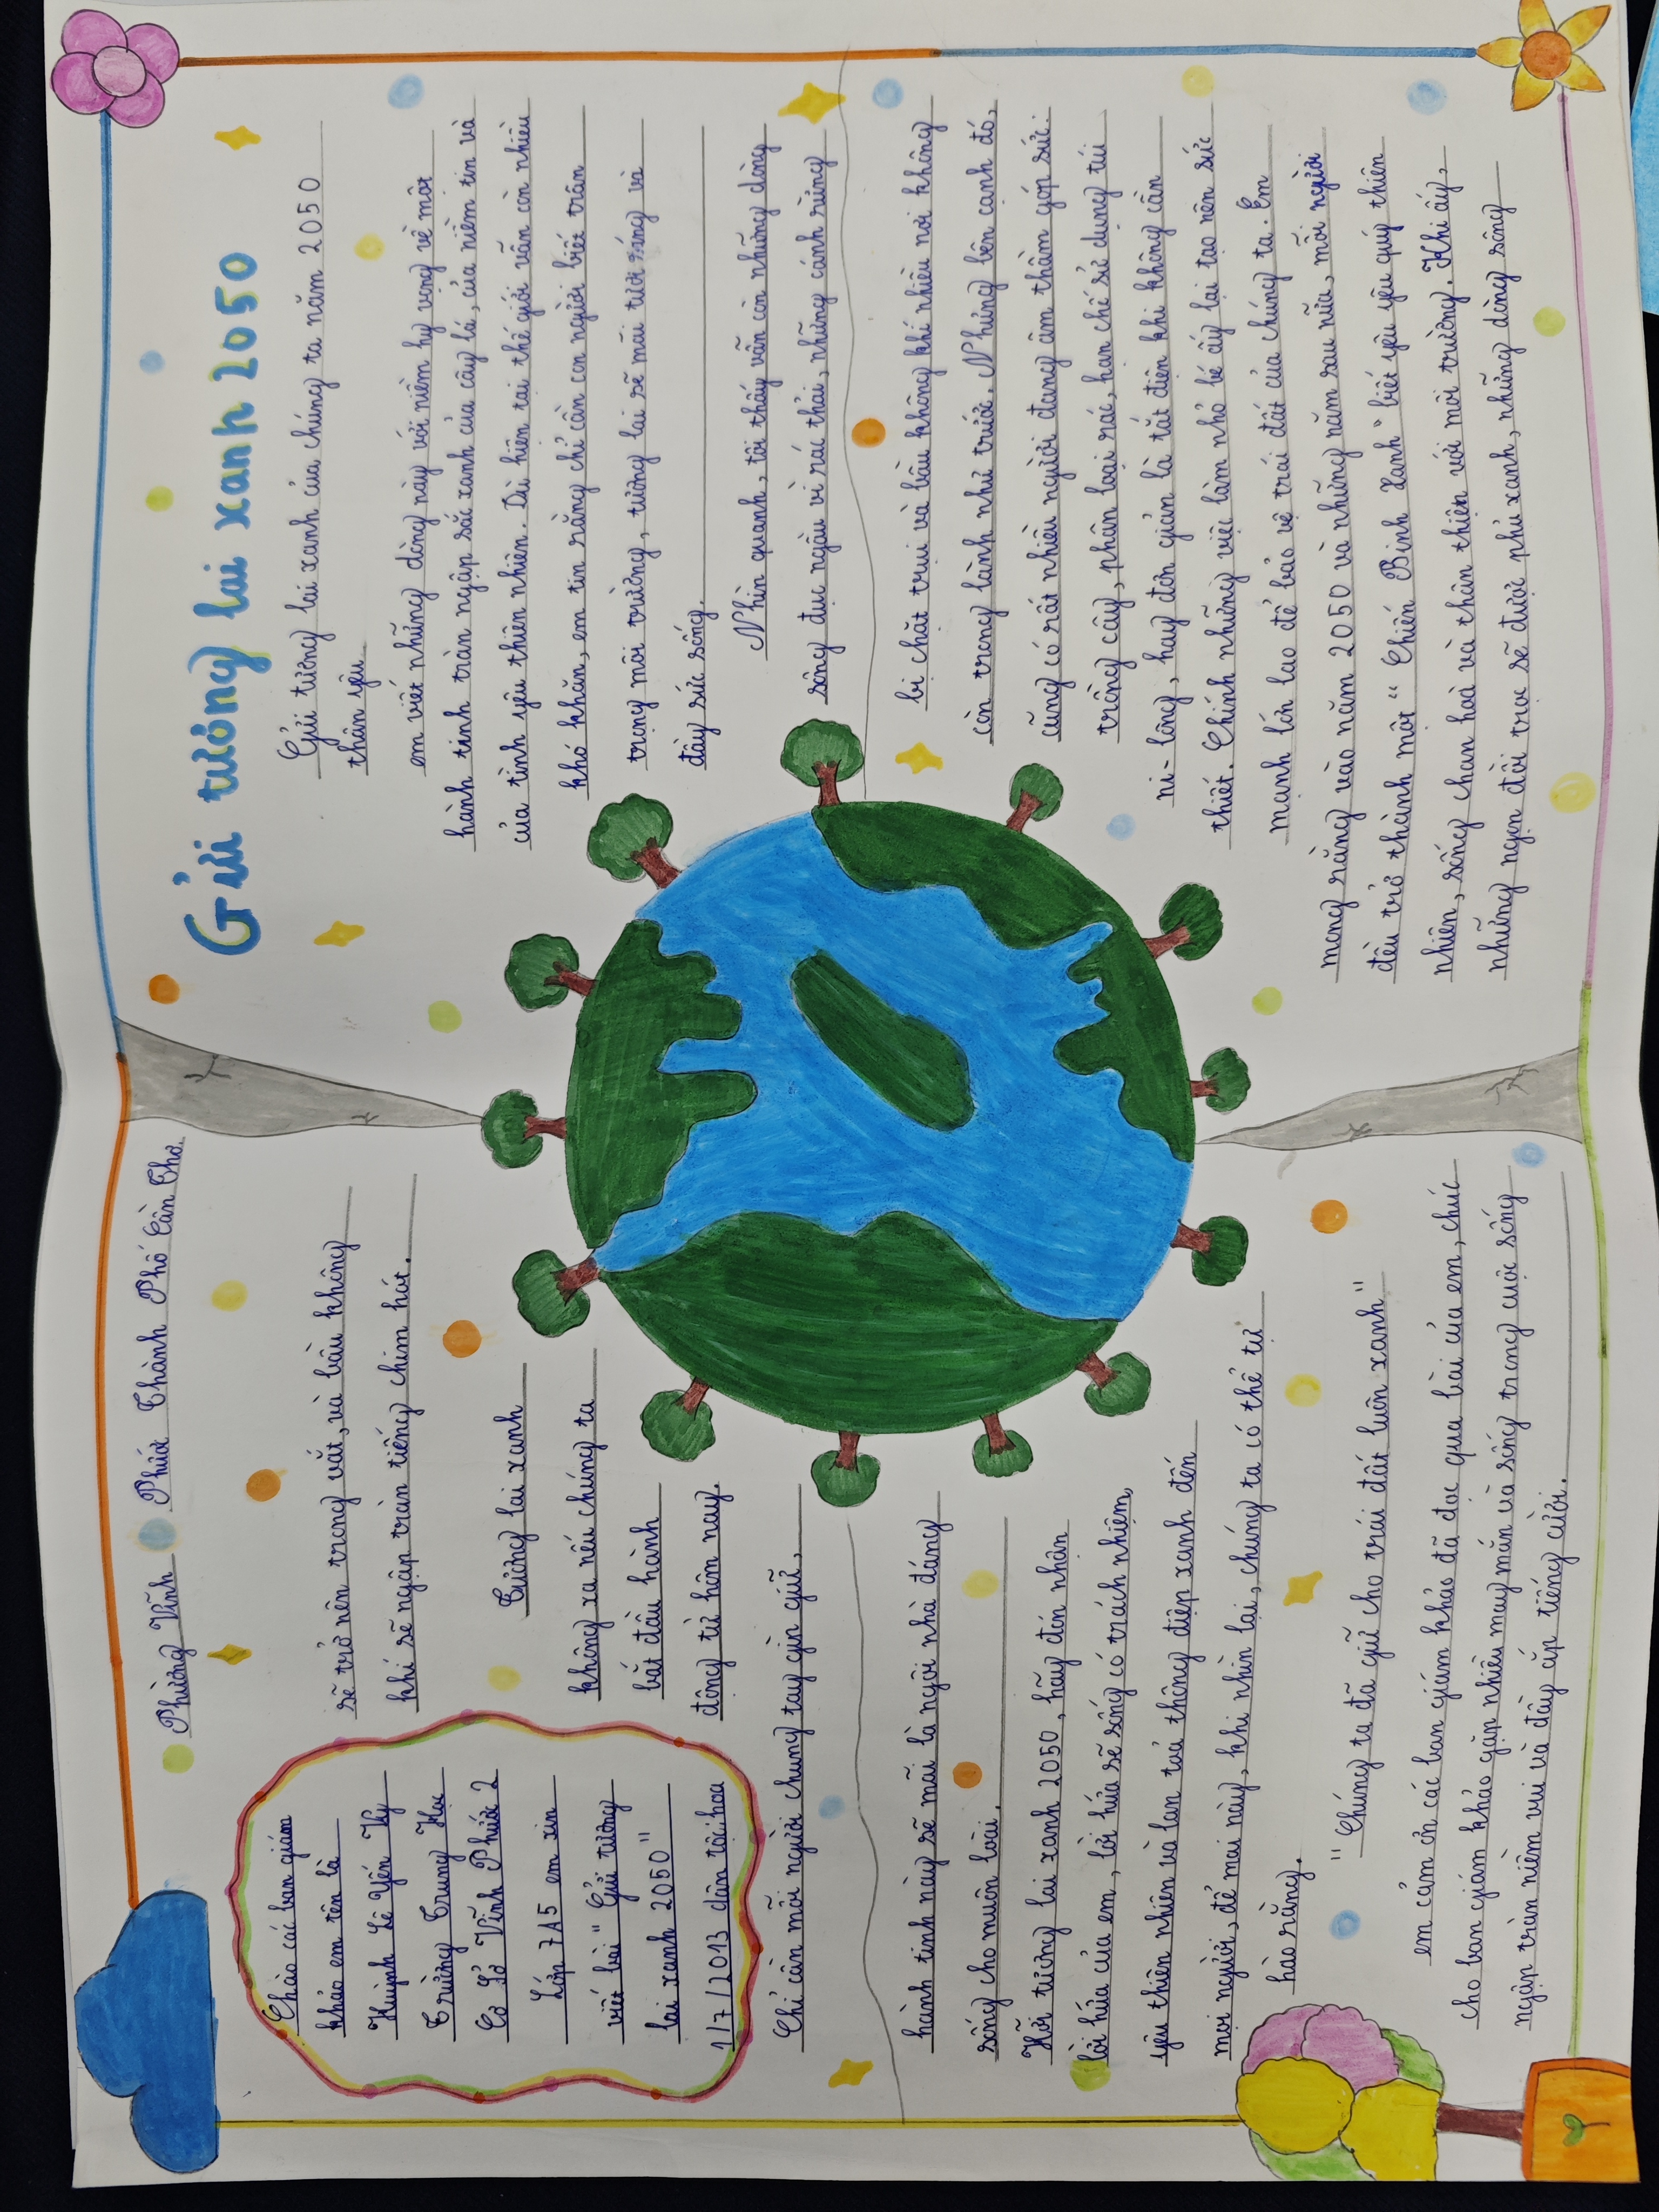 Phường Vĩnh Phước Thành Phố Cần Thơ.
Chào các ban giám
khảo em tên là
Huỳnh Lê Yến Vy
Trường Trung Học
Cơ Sở Vĩnh Phước 2
Lớp 7A5 em xin
viết bài " Gửi tương
lai xanh 2050 "
1/7/2013 dân tộc: hoa
Gửi tương lai xanh 2050
Gửi tương lai xanh của chúng ta năm 2050
thân yêu
em viết những dòng này với niềm hy vọng về một
hành tinh tràn ngập sắc xanh của cây lá, của niềm tin và
của tình yêu thiên nhiên. Dù hiện tại thế giới vẫn còn nhiều
khó khăn, em tin rằng chỉ cần con người biết trân
trọng môi trường, tương lai sẽ mãi tươi sáng và
đầy sức sống.
Nhìn quanh, tôi thấy vẫn còn những dòng
sông đục ngầu vì rác thải, những cánh rừng
bị chặt trụi và bầu không khí nhiều nơi không
còn trong lành như trước. Nhưng bên cạnh đó,
cũng có rất nhiều người đang âm thầm góp sức:
trồng cây, phân loại rác, hạn chế sử dụng túi
ni-lông, hay đơn giản là tắt điện khi không cần
thiết. Chính những việc làm nhỏ bé ấy lại tạo nên sức
mạnh lớn lao để bảo vệ trái đất của chúng ta. Em
mong rằng vào năm 2050 và những năm sau nữa, mỗi người
đều trở thành một " Chiến Binh Xanh " biết yêu yêu quý thiên
nhiên, sống chan hoà và thân thiện với môi trường. Khi ấy,
những ngọn đồi trọc sẽ được phủ xanh, những dòng sông
sẽ trở nên trong vắt, và bầu không
khí sẽ ngập tràn tiếng chim hót.
Tương lai xanh
không xa nếu chúng ta
bắt đầu hành
động từ hôm nay.
Chỉ cần mỗi người chung tay gìn giữ,
hành tinh này sẽ mãi là ngôi nhà đáng
sống cho muôn loài.
Hỡi tương lai xanh 2050, hãy đón nhận
lời hứa của em, lời hứa sẽ sống có trách nhiệm,
yêu thiên nhiên và lan toả thông điệp xanh đến
mọi người, để mai này, khi nhìn lại, chúng ta có thể tự
hào rằng.
" Chúng ta đã giữ cho trái đất luôn xanh "
em cảm ơn các ban giám khảo đã đọc qua bài của em, chúc
cho ban giám khảo gặp nhiều may mắn và sống trong cuộc sống
ngập tràn niềm vui và đầy ắp tiếng cười.